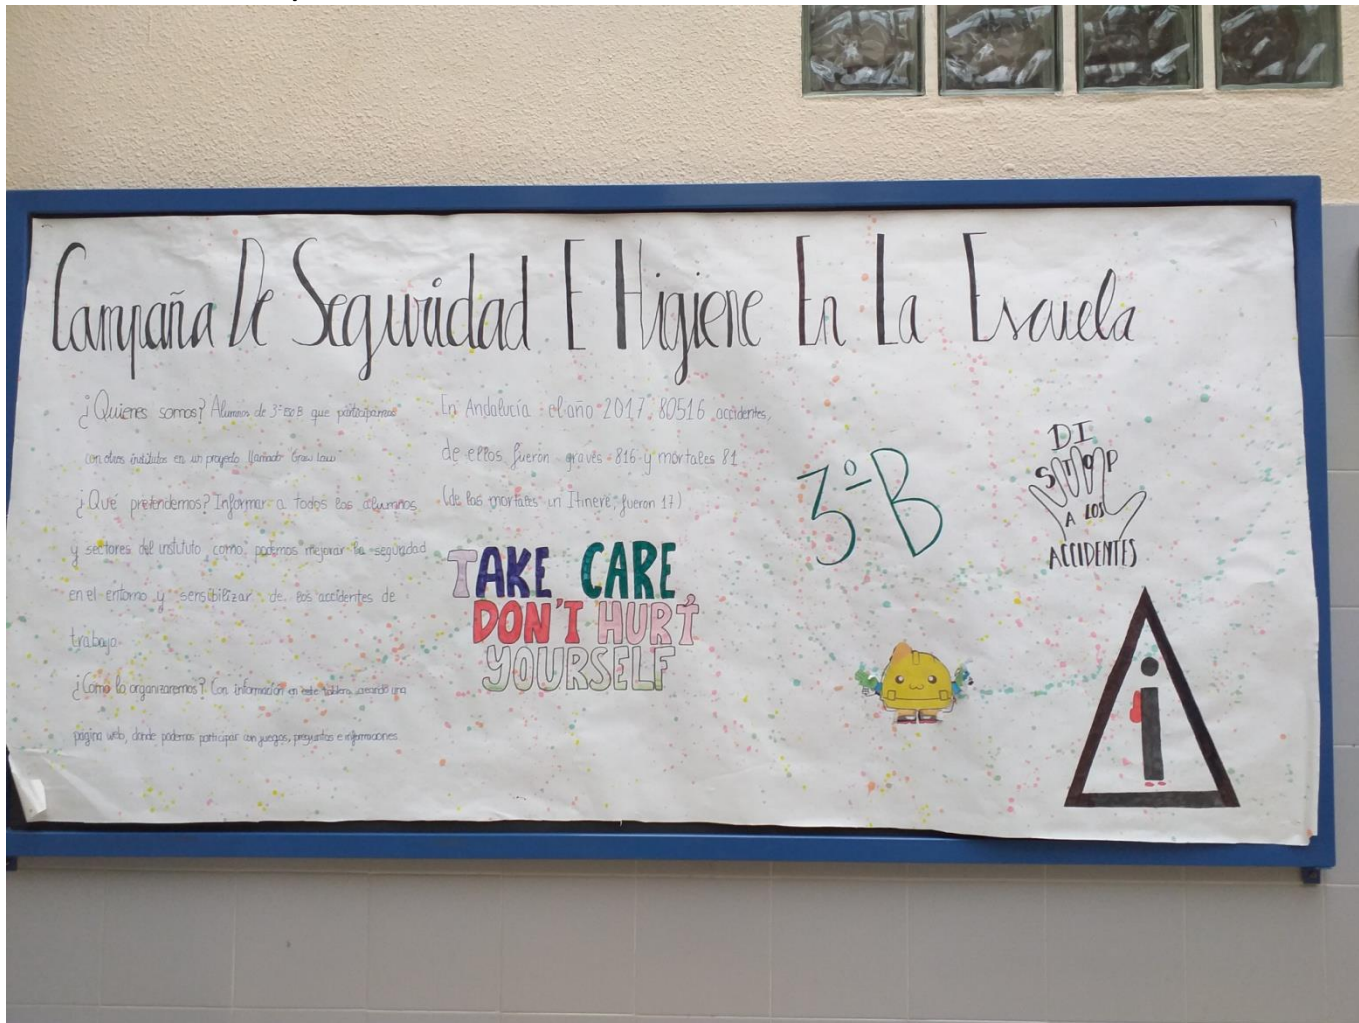 Campaña De Seguridad E Higiene En La Escuela
¿Quienes somos? Alumnos de 3º ESO B que participamos
con otros institutos en un proyecto llamado Grow Law
¿Qué pretendemos? Informar a todos los alumnos
y sectores del instituto como podemos mejorar la seguridad
en el entorno y sensibilizar de los accidentes de
trabajo.
¿Como lo organizaremos? Con información en este tablero, creando una
página web, donde podemos participar con juegos, preguntas e informaciones.
En Andalucía el año 2017 80516 accidentes,
de ellos fuerón graves 816 y mortales 81
(de los mortales un Itinere, fueron 17)
TAKE CARE
DON'T HURT
YOURSELF
3ºB
DI
STOP
A LOS
ACCIDENTES